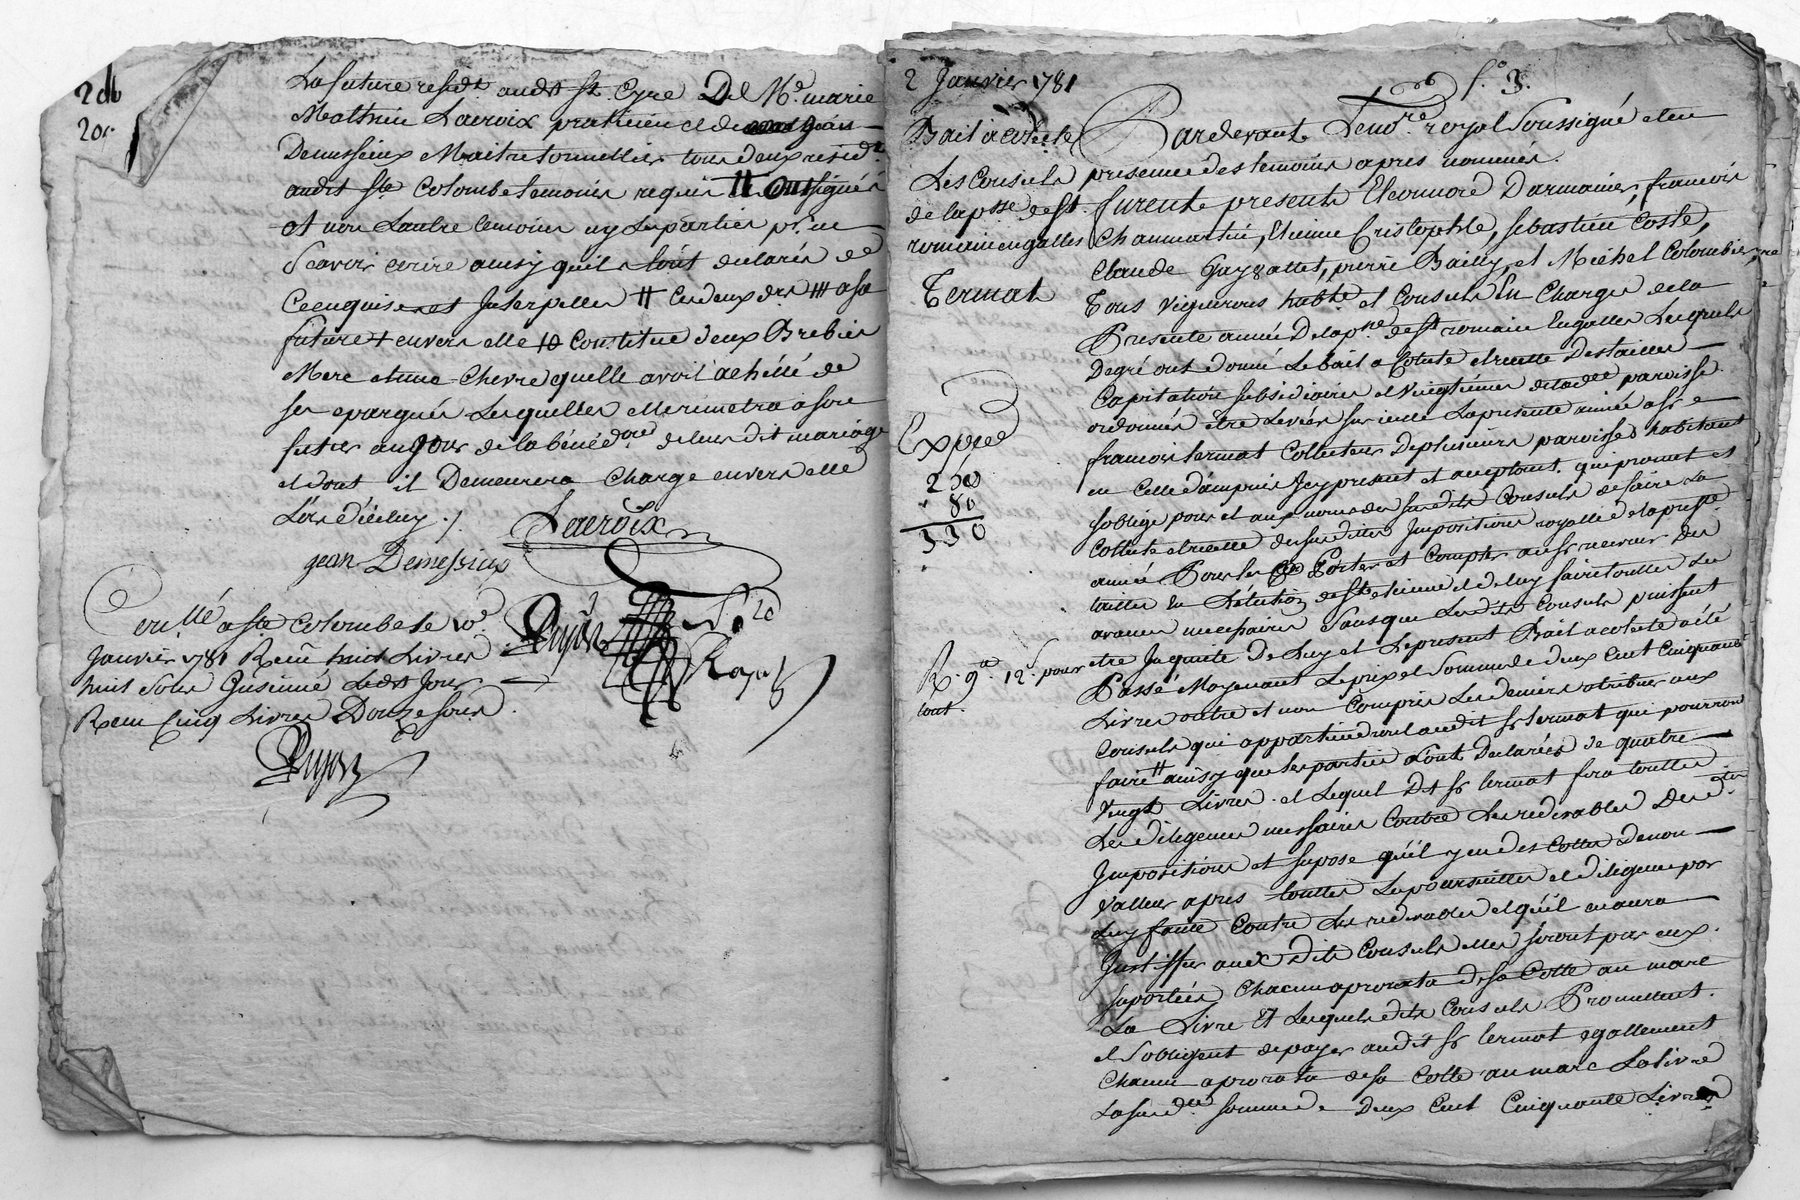 La future resid.t audit St. Cyre De Me. marie
Mathieu Lacroix praticien et de Jean
Demessieux Maitre tonnellier tous deux resid.ts
audit Ste Colombe temoins requis H L'un signés
et non L'autre temoin ny Les parties p.r ne
Scavoir ecrire ainsy quils L'ont declarés de
Ce enquis et Interpellés H
future + envers elle constitue deux Brebis
Mere et une Chevre quelle avoit achétté de
ses epargnes Lesquelles elle remetra a son
futur au Jour de la bénéd.on de leur dit mariage
et dont il Demeurera Chargé envers elle
Lacroix
jean Demessieux
Con.llé a Ste Colombe le 10e
Janvier 1781 Recu huit Livres
huit sous Insinué Ledit Jour
Recu Cinq Livres Douze sous
Dujast
Dujast
2 Janvier 1781
f.o 3.
Bail a colecte
Les Consuls
de la p.sse de St.
romain en galles
A
Termat
Expedié
250
80
330
R. 9.# 12.s pour
tout.
Pardevant Le no.re royal Soussigné et en
presence des temoins apres nommés.
furent presents Eleonnore Darmanier, francois
Chaumartin, Etienne Cristophle, sebastien Coste,
Claude Gayzallet, pierre Bailly, et Michel Colombier
Tous Vignerons habts et Consuls En Charge de la
Presente année De la p.sse de St romain En galles Lesquels
De gré ont donné Le bail a Colecte et recette Des tailles
Capitation subsidiaires et Vingtiemes de lad.e paroisse
ordonnés être Levées sur icelle La presente année a sr
francois termat Collecteur De plusieurs paroisses habitant
en Celle d'ampuis Jcy present et acceptant qui promet et
s'oblige pour et aux noms des susdits Consuls de faire La
Collecte et recette des susdittes Impositions royalles de la pres.te
année Pour Les Porter et Compter au sr receveur des
tailles En L'election de St etienne et de luy faire touttes Les
avances necessaires sans que Lesdits Consuls puissent
etre Inquiétés De Luy et Le present Bail a colecte a été
Passé Moyenant Le prix et Somme de deux Cent Cinquante
Livres outre et non Compris Les deniers atribués aux
Consuls qui appartiendront audit sr termat qui pourront
faire H ainsy que Les parties L'ont Declarées de quatre
Vingt Livres et Lequel Dit sr termat fera touttes
Les diligences necessaires Contre Les redevables Desd.tes
Impositions et supose qu'il y eu des Cottes De non
Valleur apres touttes Les poursuittes et diligence par
Luy faitte Contre Les redevables et qu'il en aura
Justiffié aux dits Consuls elles seront par eux
suportées Chacun a prorata de sa Cotte au marc
La Livre Et Lesquels dits Consuls Promettent
et s'obligent de payer audit sr termat egallement
Chacun a prorata de sa Cotte au marc La livre
La susd.te somme de Deux Cent Cinquante Livres